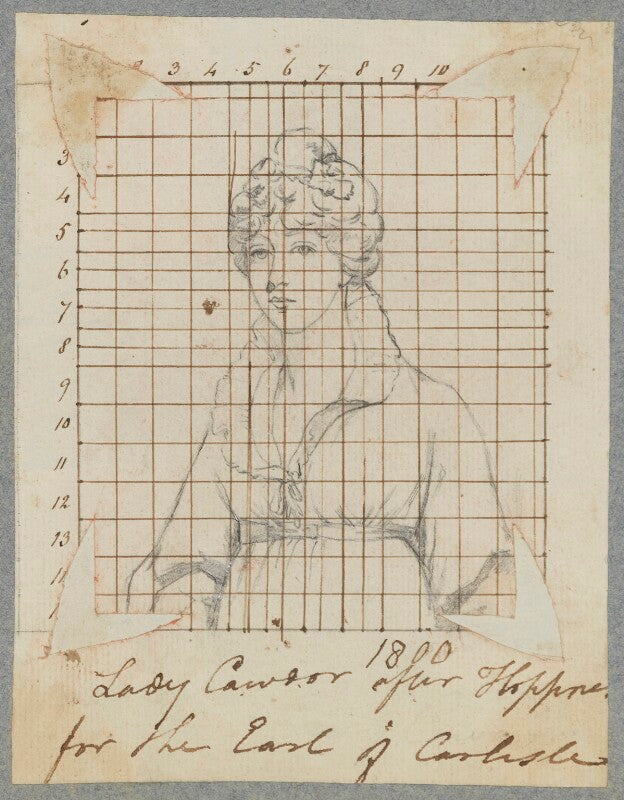 2 3 4 5 6 7 8 9 10
3
4
5
6
7
8
9
10
11
12
13
1800
Lady Cawdor after Hoppne
for the Earl of Carlisle